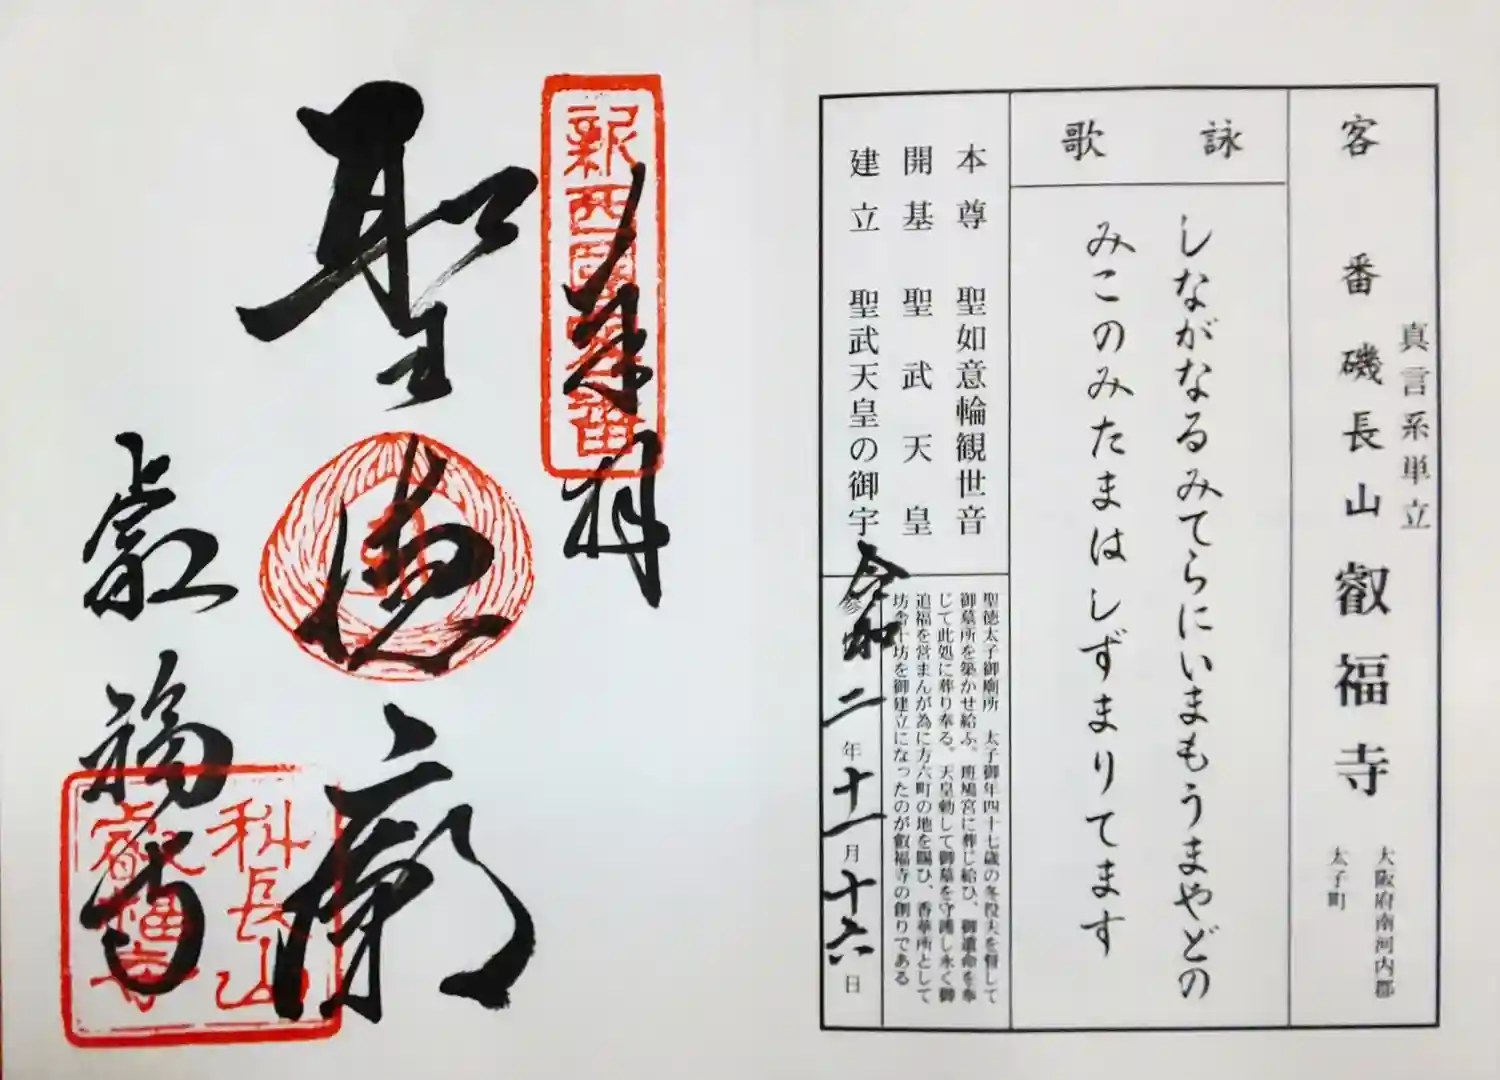 客番 磯長山 叡福寺
真言系単立
大阪府南河内郡
太子町
詠歌
しながなるみてらにいまもうまやどの
みこのみたまはしずまりてます
本尊 聖如意輪観世音
開基 聖武天皇
建立 聖武天皇の御宇
聖徳太子御廟所 太子御年四十七歳の冬役夫を督して
御墓所を築かせ給ふ、班鳩宮に葬じ給ひ、御遺命を奉
じて此処に葬り奉る。天皇勅して御墓を守護し永く御
追福を営まんが為に方六町の地を賜ひ、香華所として
坊舎十坊を御建立になったのが叡福寺の創りである
令和二年十一月十六日
奉拝
新西國客番
聖徳廟
叡福寺
科長山
叡福寺